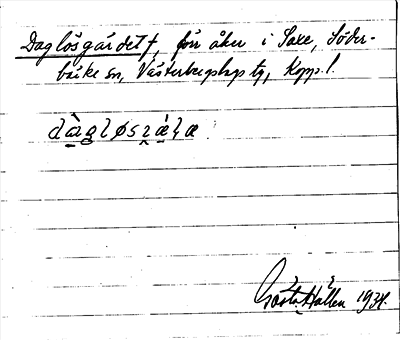 Daglösgärdet f, förr åker i Saxe, Söder-
bärke sn, Västerbergslags tg, Kopp. l.
dàgløsʐæ̀ɭæ
Gösta Hallén 1934.